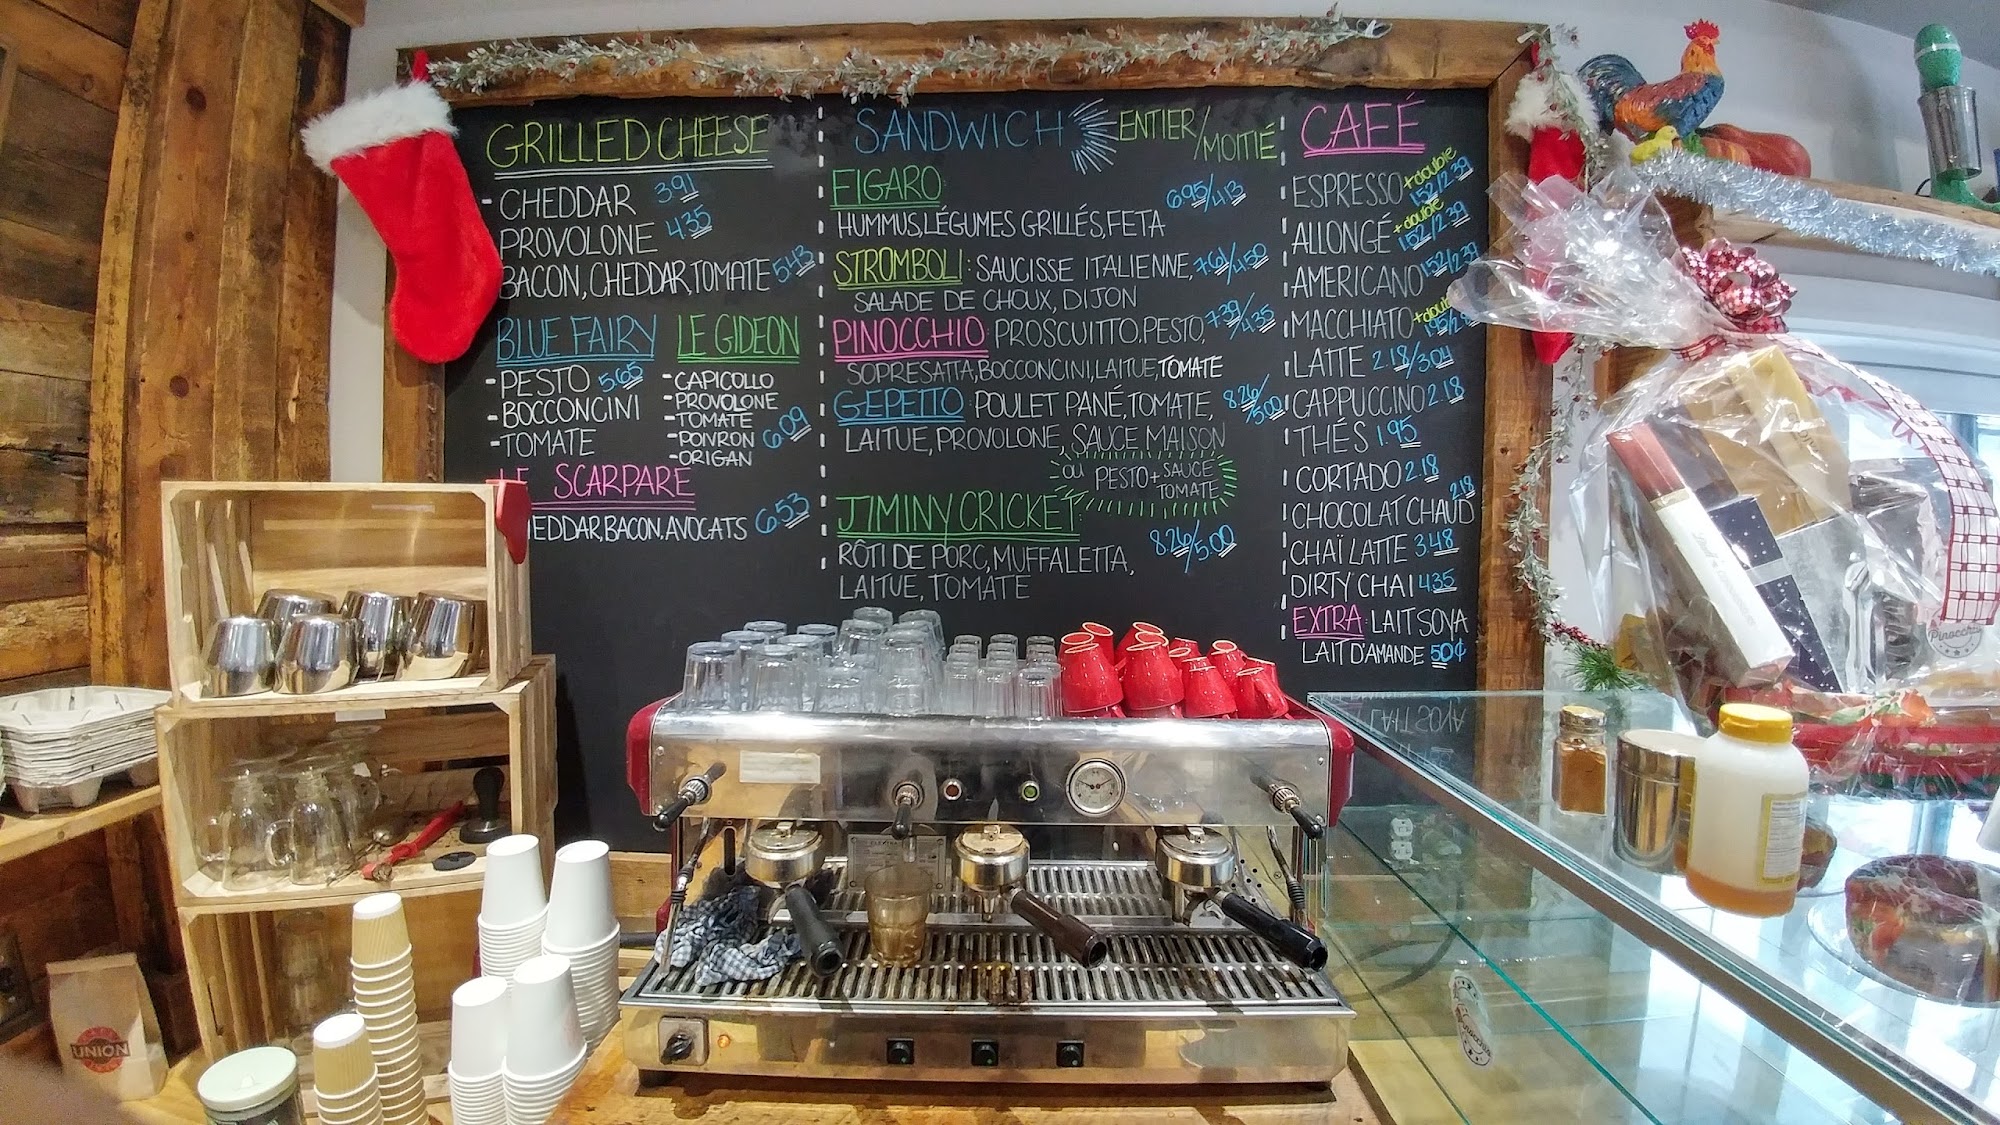 GRILLED CHEESE
- CHEDDAR 3.91
PROVOLONE 4.35
BACON, CHEDDAR, TOMATE 5.43
BLUE FAIRY
- PESTO 5.65
- BOCCONCINI
- TOMATE
LE GIDEON
- CAPICOLLO
- PROVOLONE
- TOMATE 6.09
- POIVRON
- ORIGAN
LE SCARPARE
HEDDAR, BACON, AVOCATS 6.53
SANDWICH ENTIER/MOITIÉ
FIGARO: 6.95/4.13
HUMMUS, LÉGUMES GRILLÉS, FETA
STROMBOLI: SAUCISSE ITALIENNE, 7.61/4.50
SALADE DE CHOUX, DIJON
PINOCCHIO: PROSCUITTO, PESTO, 7.39/4.35
SOPRESATTA, BOCCONCINI, LAITUE, TOMATE
GEPETTO: POULET PANÉ, TOMATE, 8.26/5.00
LAITUE, PROVOLONE, SAUCE MAISON
OU PESTO + SAUCE TOMATE
JIMINY CRICKET: 8.26/5.00
RÔTI DE PORC, MUFFALETTA,
LAITUE, TOMATE
CAFÉ
ESPRESSO + double 1.52/2.39
ALLONGÉ + double 1.52/2.39
AMERICANO 1.52/2.39
MACCHIATO + double
LATTE 2.18/3.04
CAPPUCCINO 2.18
THÉS 1.95
CORTADO 2.18
CHOCOLAT CHAUD 2.18
CHAÏ LATTE 3.48
DIRTY CHAI 4.35
EXTRA: LAIT SOYA
LAIT D'AMANDE 50¢
UNION
Pinocchio
Pinocchio